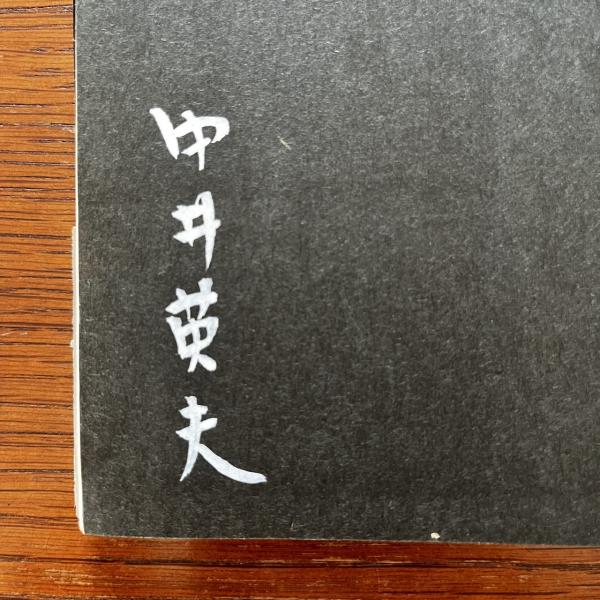 中井英夫